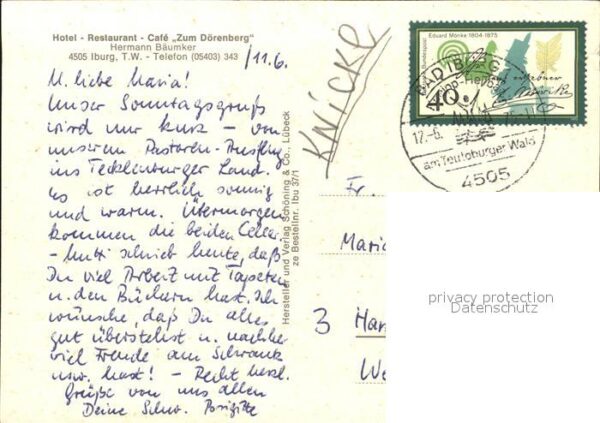 Hotel - Restaurant - Café „Zum Dörenberg"
Hermann Bäumker
4505 Iburg, T.W. - Telefon (05403) 343
/11.6.
M. liebe Maria!
Unser Sonntagsgruß
wird nur kurz – von
unserem Pastoren-Ausflug
ins Tecklenburger Land.
es ist herrlich sonnig
und warm. Übermorgen
kommen die beiden Celler.
– Mutti schrieb heute, daß
Du viel Arbeit mit Tapeten
u. den Büchern hast. Ich
wünsche, daß Du alles
gut überstehst u. nachher
viel Freude am Schrank
usw. hast! – Recht herzl.
Grüße von uns allen
Deine Schw. Brigitte
Hersteller und Verlag Schöning & Co., Lübeck
ze Bestellnr. Ibu 37/1
KNICKE
Deutsche Bundespost
Eduard Mörike 1804-1875
40
BAD IBURG
17.-6.
am Teutoburger Wald
4505
Fr.
Maria
3 Han
We
privacy protection
Datenschutz